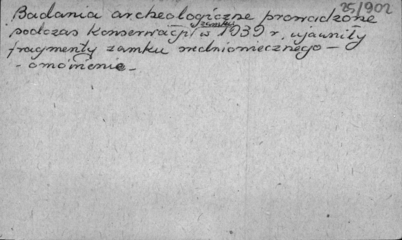 25/902
Badania archeologiczne prowadzone
zamku
podczas konserwacji w 1939 r. ujawniły
fragmenty zamku średniowiecznego –
– omówienie –